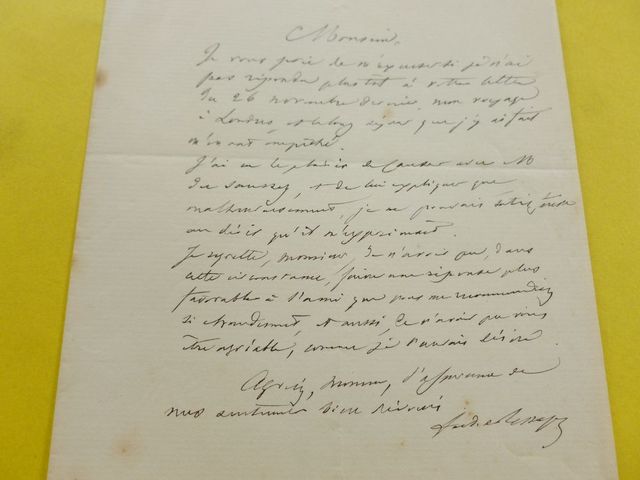 Monsieur,
Je vous prie de m'excuser si je n'ai
pas répondu plus tôt à votre lettre
du 26 novembre dernier, mon voyage
à Londres, et le long séjour que j'y ai fait
m'en ont empêché.
J'ai eu le plaisir de causer avec M
du et de lui expliquer que
malheureusement, je ne pouvais satisfaire
au désir qu'il m'exprimait.
Je regrette, Monsieur, de n'avoir pu, dans
cette circonstance, faire une réponse plus
favorable à l'ami que vous me recommandiez
si chaudement, et aussi, de n'avoir pu vous
être agréable, comme je l'aurais désiré.
Agréez, Monsieur, l'assurance de
mes sentiments bien dévoués